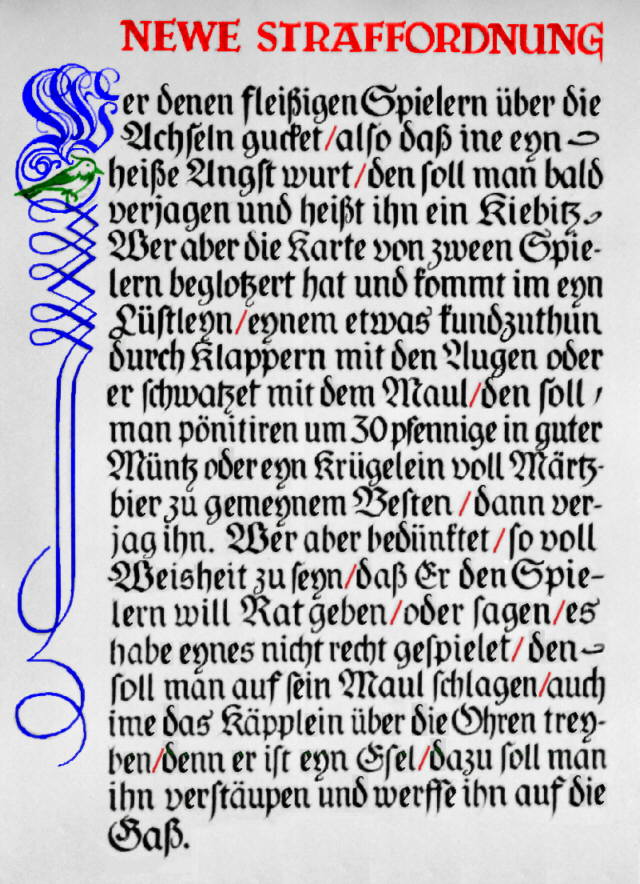 NEWE STRAFFORDNUNG
Wer denen fleißigen Spielern über die
Achseln gucket/also daß ine eyn
heiße Angst wurt/den soll man bald
verjagen und heißt ihn ein Kiebitz.
Wer aber die Karte von zween Spie-
lern beglotzert hat und kommt im eyn
Lüstleyn/eynem etwas kundzuthun
durch Klappern mit den Augen oder
er schwatzet mit dem Maul/den soll
man pönitiren um 30 pfennige in guter
Müntz oder eyn Krügelein voll Märtz-
bier zu gemeynem Besten/dann ver-
jag ihn. Wer aber bedünktet/so voll
Weisheit zu seyn/daß Er den Spie-
lern will Rat geben/oder sagen/es
habe eynes nicht recht gespielet/den
soll man auf sein Maul schlagen/auch
ime das Käpplein über die Ohren trey-
ben/denn er ist eyn Esel/dazu soll man
ihn verstäupen und werffe ihn auf die
Gaß.